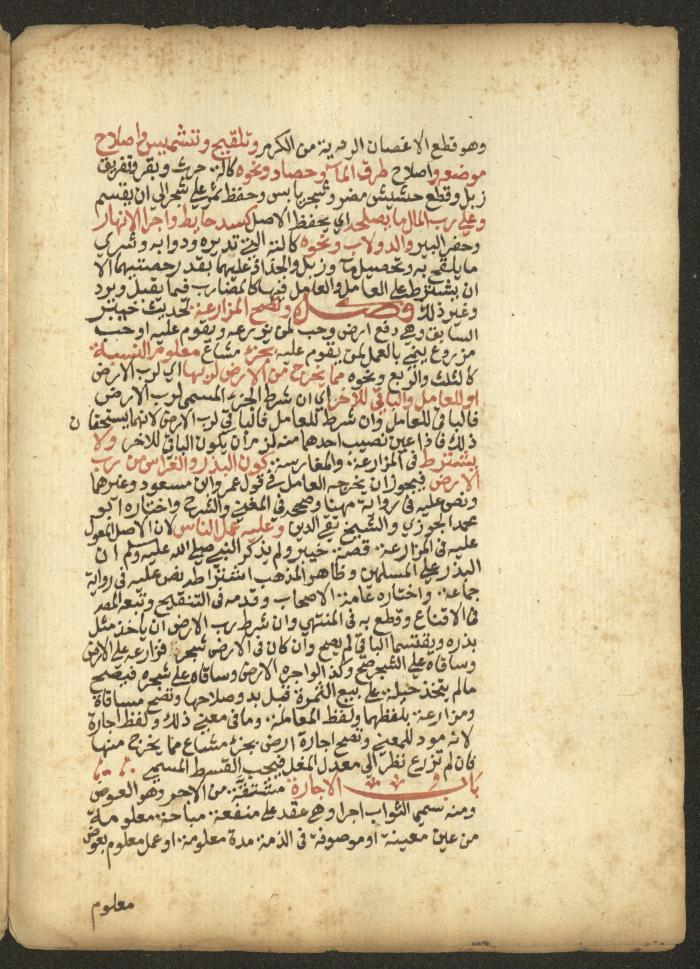 وهو قطع الاغصان الردية من الكرم وتلقيح وتشميس واصلاح
موضعه واصلاح طرق الماء وحصاد ونحوه كالة حرث وبقر وتفريق
زبل وقطع حشيش مضر وشجر يابس وحفظ ثمر على شجر الى ان يقسم
وعلى رب المال ما يصلحه اي يحفظ الاصل كسد حايط واجرا الانهار
وحفر البير والدولاب ونحوه كالته التي تديره ودوابه وشرى
ما يلقح به وتحصيل ماء وزبل والجذاذ عليهما بقدر حصتيهما الا
ان يشترط على العامل والعامل فيها كالمضارب فيما يقبل ويرد
وغير ذلك فصل وتصح المزارعة لحديث خيبر
السابق وهي دفع ارض وحب لمن يزرعه ويقوم عليه او حب
مزروع ينمى بالعمل لمن يقوم عليه بجزء مشاع معلوم النسبة
كالثلث والربع ونحوه مما يخرج من الارض لربها اي لرب الارض
او للعامل والباقي للاخر اي ان شرط الجزء المسمى لرب الارض
فالباقي للعامل وان شرط للعامل فالباقي لرب الارض لانهما يستحقان
ذلك فاذا عين نصيب احدهما منه لزم ان يكون الباقي للاخر ولا
يشترط في المزارعة والمغارسة كون البذر والغراس من رب
الارض فيجوز ان يخرجه العامل في قول عمر وابن مسعود وغيرهما
ونص عليه في رواية مهنا وصححه في المغني والشرح واختاره ابو
محمد الجوزي والشيخ تقي الدين وعليه عمل الناس لان الاصل المعول
عليه في المزارعة قصة خيبر ولم يذكر النبي صلى الله عليه وسلم ان
البذر على المسلمين وظاهر المذهب اشتراطه نص عليه في رواية
جماعة واختاره عامة الاصحاب وقدمه في التنقيح وتبعه المص
في الاقناع وقطع به في المنتهى وان شرط رب الارض ان ياخذ مثل
بذره ويقتسما الباقي لم يصح وان كان في الارض شجر فزارعه على الارض
وساقاه على الشجر صح وكذا لو اجره الارض وساقاه على شجره فيصح
مالم يتخذ حيلة على بيع الثمرة قبل بدو صلاحها وتصح مساقاة
ومزارعة بلفظهما ولفظ المعاملة وما في معنى ذلك ولفظ اجارة
لانه مود للمعنى وتصح اجارة ارض بجزء مشاع مما يخرج منها
فان لم تزرع نظر الى معدل المغل فيجب القسط المسمى
باب الاجارة مشتقة من الاجر وهو العوض
ومنه سمي الثواب اجرا وهي عقد على منفعة مباحة معلومة
من عين معينة او موصوفة في الذمة مدة معلومة او عمل معلوم بعوض
معلوم